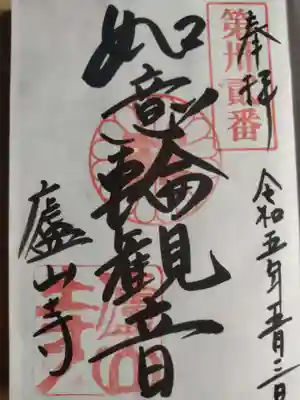 奉拝
第卅貳番
令和五年五月三日
如意輪観音
廬山寺